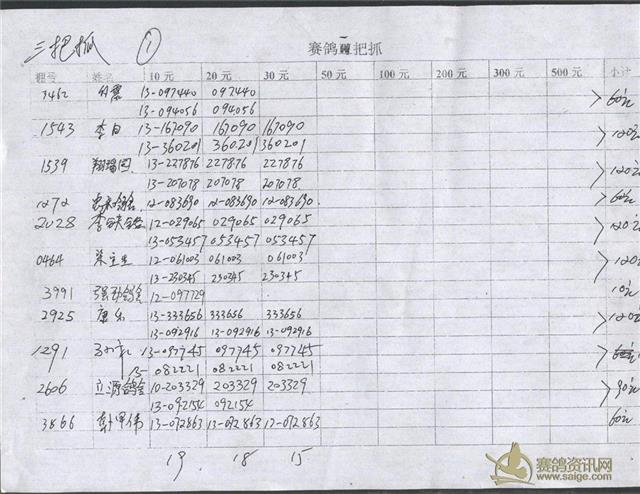 三把抓 ① 赛鸽 把抓
棚号 姓名 10元 20元 30元 50元 100元 200元 300元 500元 小计
3462 13-097440 097440 60元
13-094056 094056
1543 李白 13-167090 167090 167090 120元
13-360201 360201 360201
1539 翔瑞阁 13-227876 227876 227876 120元
13-207078 207078 207078
1272 12-083690 12-083690 12-083690 60元
2028 12-029065 029065 029065 120元
13-053457 053457 053457
0464 12-061003 061003 061003 120元
13-230345 230345 230345
3991 强劲鸽舍 12-097729 10元
2925 唐乐 13-333656 333656 333656 120元
13-092916 13-092916 13-092916
1291 13-097745 097745 097745
13-082221 082221 082221
2606 立源鸽舍 10-203329 203329 203329 90元
13-092154 092154
3866 13-072863 13-072863 13-072863 60元
19. 18 15
赛鸽资讯网
www.saige.com